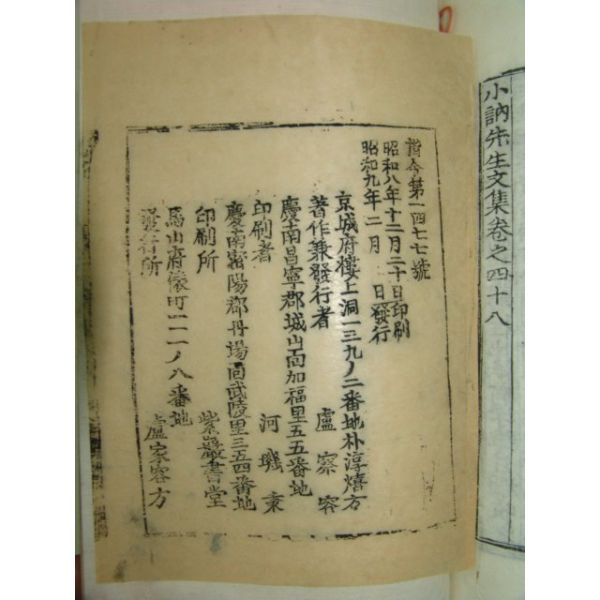 小訥先生文集卷之四十八
指令第一四七七號
昭和八年十二月二十日印刷
昭和九年二月 日發行
京城府樓上洞一三九ノ二番地朴淳熺方
著作兼發行者 盧家容
慶南昌寧郡城山面加福里五五番地
印刷者 河璣東
慶南密陽郡丹場面武陵里三五四番地
印刷所 紫巖書堂
馬山府俵町一二一ノ八番地
發行所 盧家容方